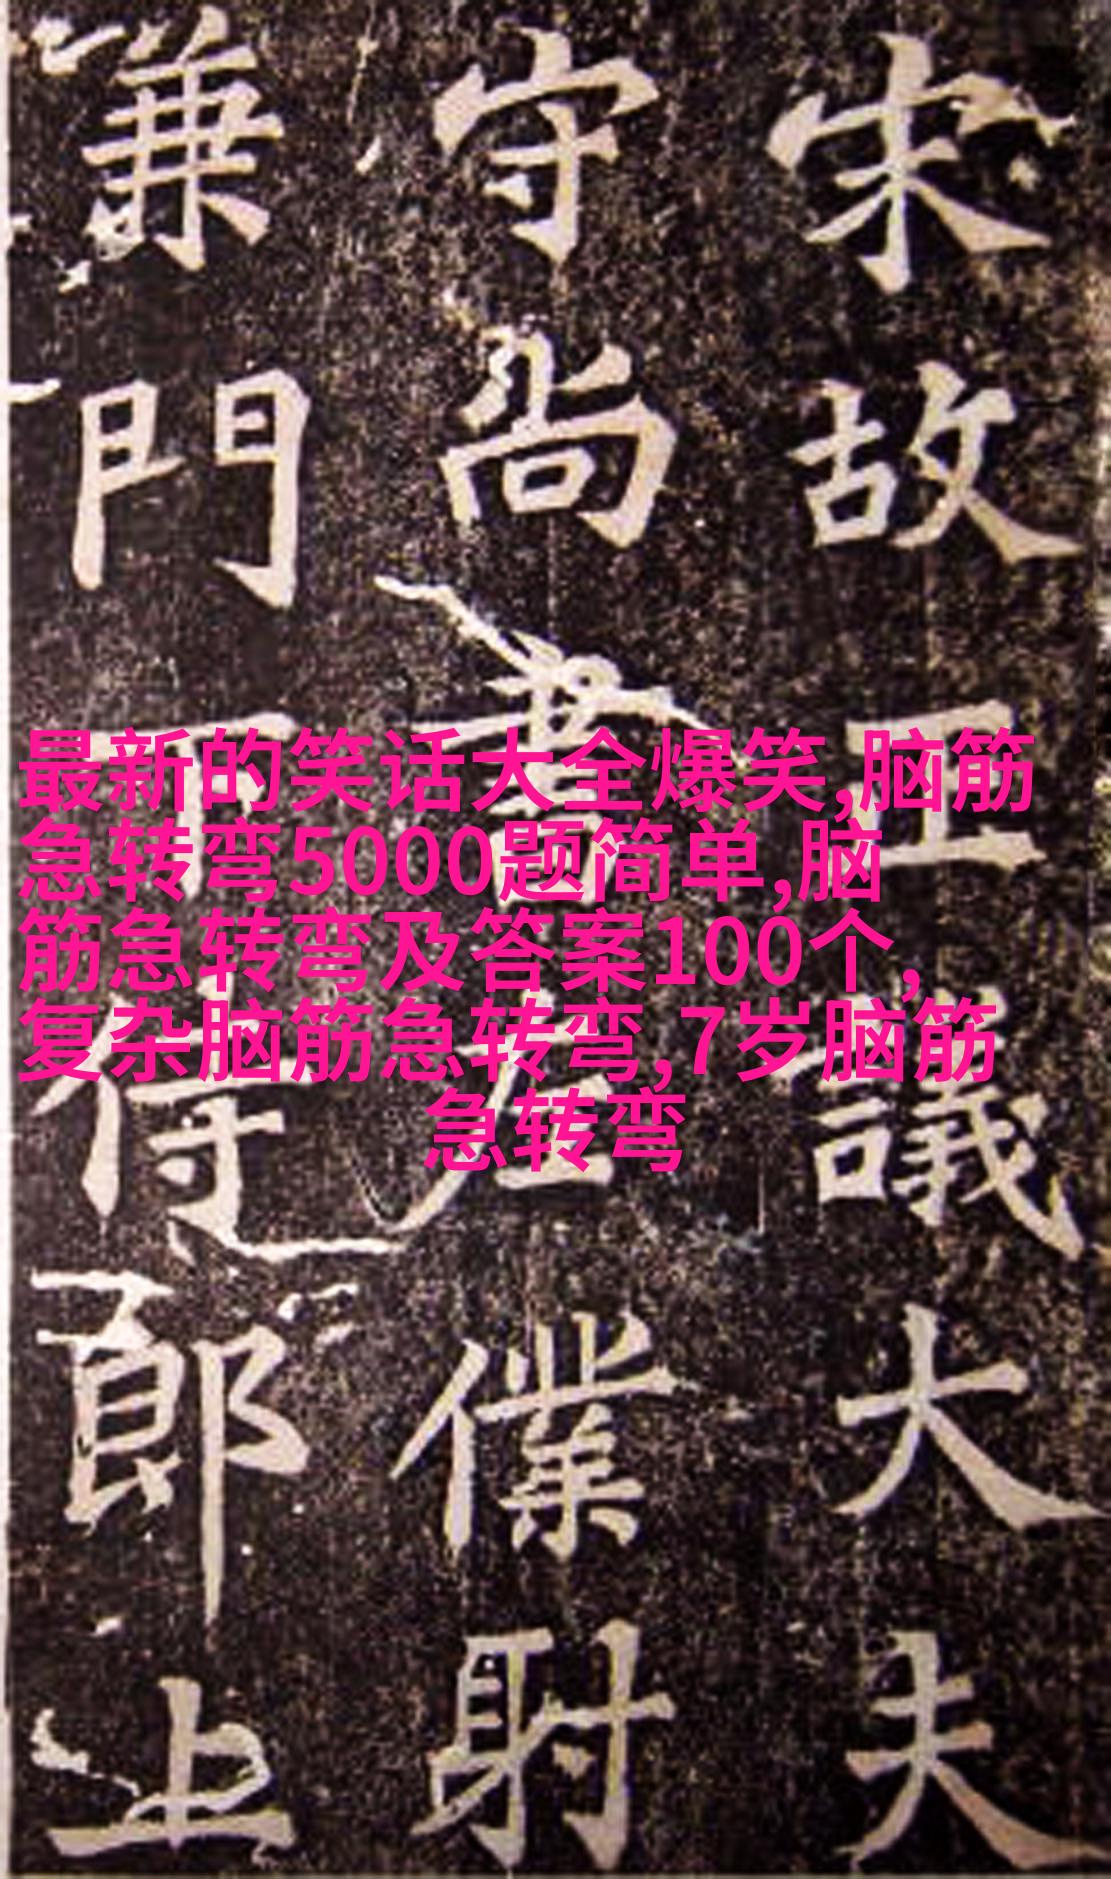 宋故正議大夫
守尚書左僕射
兼門下侍郎上
最新的笑话大全爆笑,脑筋
急转弯5000题简单,脑
筋急转弯及答案100个,
复杂脑筋急转弯,7岁脑筋
急转弯